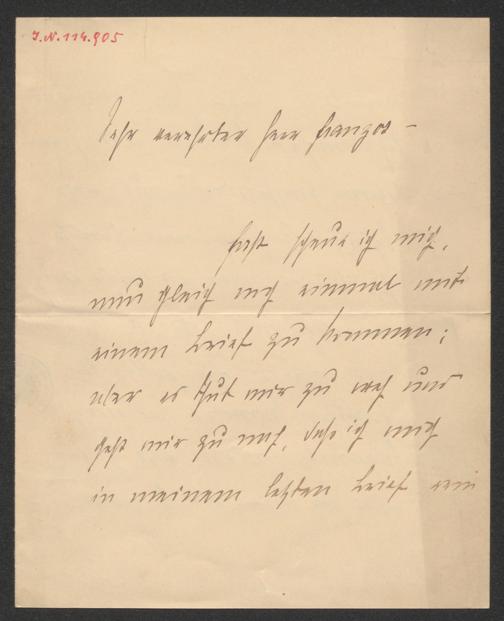 J.N. 114.905
Sehr verehrter Herr Franzos –
fast scheue ich mich,
nun gleich noch einmal mit
einem Brief zu kommen;
aber es thut mir zu weh und
geht mir zu nah, daß ich mich
in meinem letzten Brief